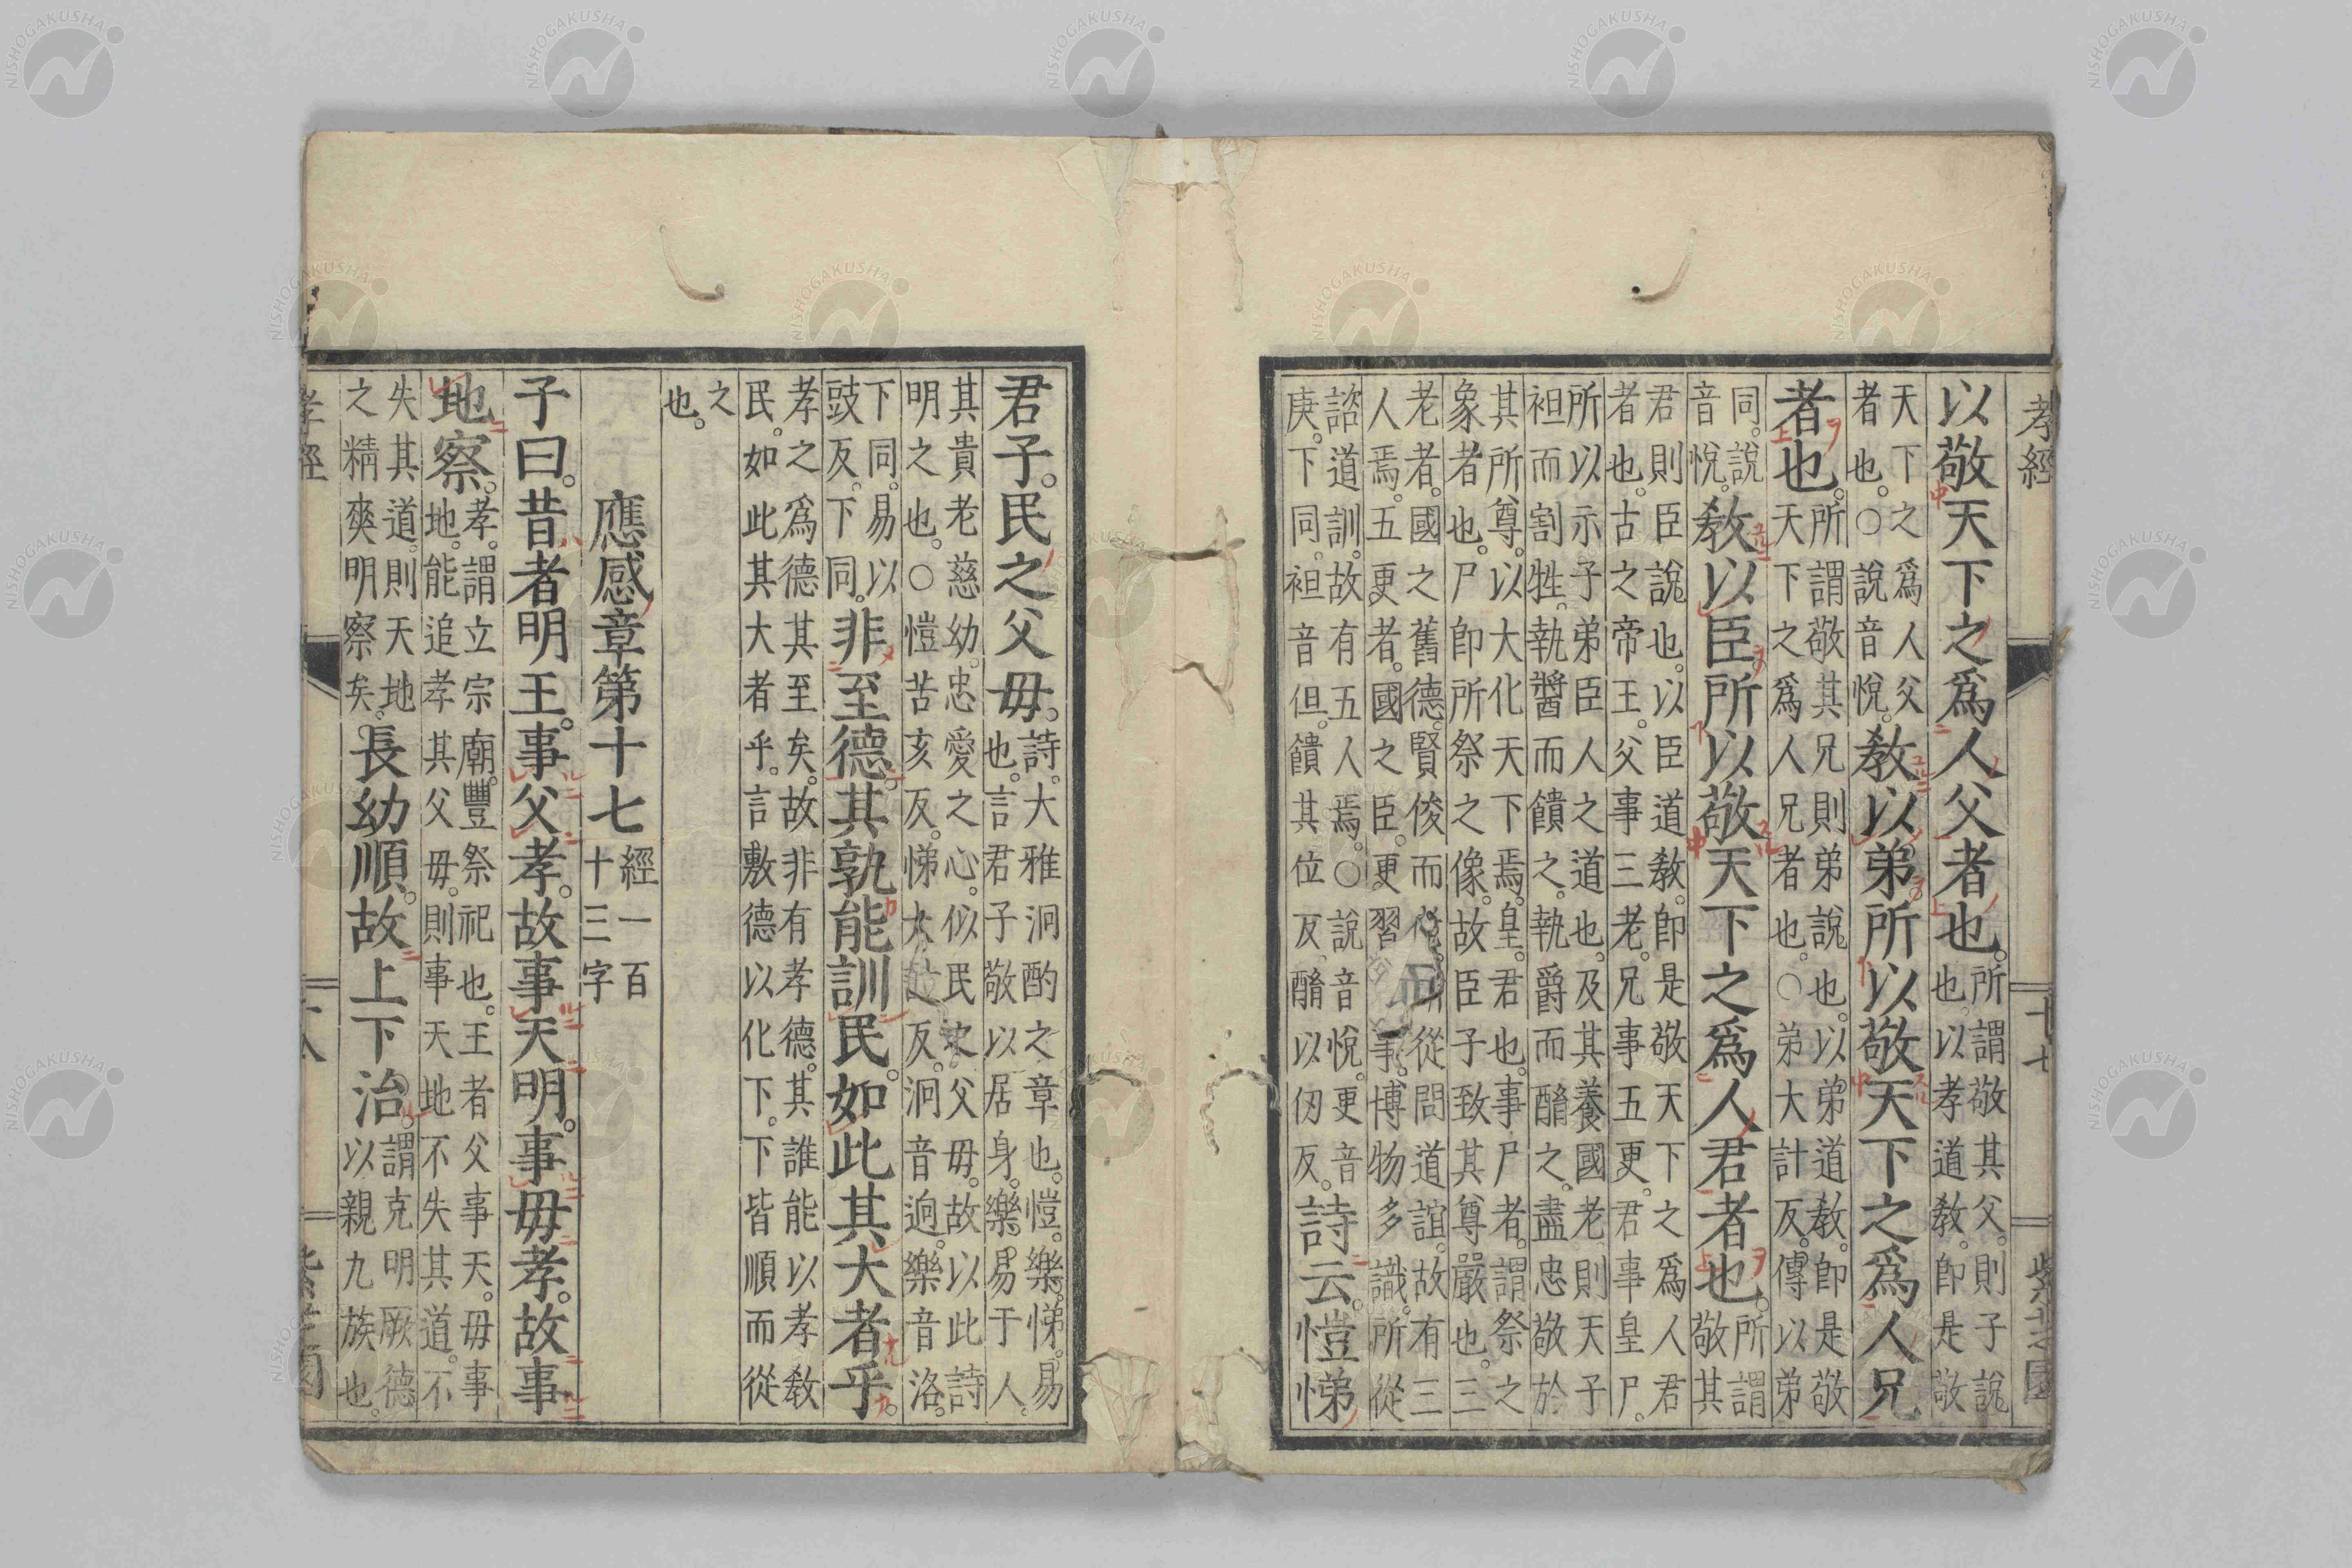 孝經 十七 紫芝園
以敬天下之爲人父者也。所謂敬其父。則子說
也。以孝道敎。卽是敬
天下之爲人父
者也。○說音悅。敎以弟所以敬天下之爲人兄
者也。所謂敬其兄則弟說也。以弟道敎。卽是敬
天下之爲人兄者也。○弟大計反。傳以弟
同。說
音悅。敎以臣所以敬天下之爲人君者也。所謂
敬其
君則臣說也。以臣道敎。卽是敬天下之爲人君
者也。古之帝王。父事三老。兄事五更。君事皇尸。
所以示子弟臣人之道也。及其養國老。則天子
袒而割牲。執醬而饋之。執爵而酳之。盡忠敬於
其所尊。以大化天下焉。皇。君也。事尸者。謂祭之
象者也。尸卽所祭之像。故臣子致其尊嚴也。三
老者。國之舊德。賢俊而從問道誼。故有三
人焉。五更者。國之臣。更習事。博物多識。所從
諮道訓。故有五人焉。○說音悅。更音
庚。下同。袒音但。饋其位反。酳以仞反。詩云。愷悌
君子。民之父毋。詩。大雅泂酌之章也。愷。樂。悌。易
也。言君子敬以居身。樂易于人。
其貴老慈幼。忠愛之心。似民之父毋。故以此詩
明之也。○愷苦亥反。悌大反。泂音迥。樂音洛。
下同。易以
豉反。下同。非至德。其孰能訓民。如此其大者乎。
孝之爲德其至矣。故非有孝德。其誰能以孝敎
民。如此其大者乎。言敷德以化下。下皆順而從
之
也。
應感章第十七 經一百
十三字
子曰。昔者明王。事父孝。故事天明。事毋孝。故事
地察。孝。謂立宗廟。豐祭祀也。王者父事天。毋事
地。能追孝其父毋。則事天地不失其道。不
失其道。則天地
之精爽明察矣。長幼順。故上下治。謂克明厥德
以親九族也。
孝經